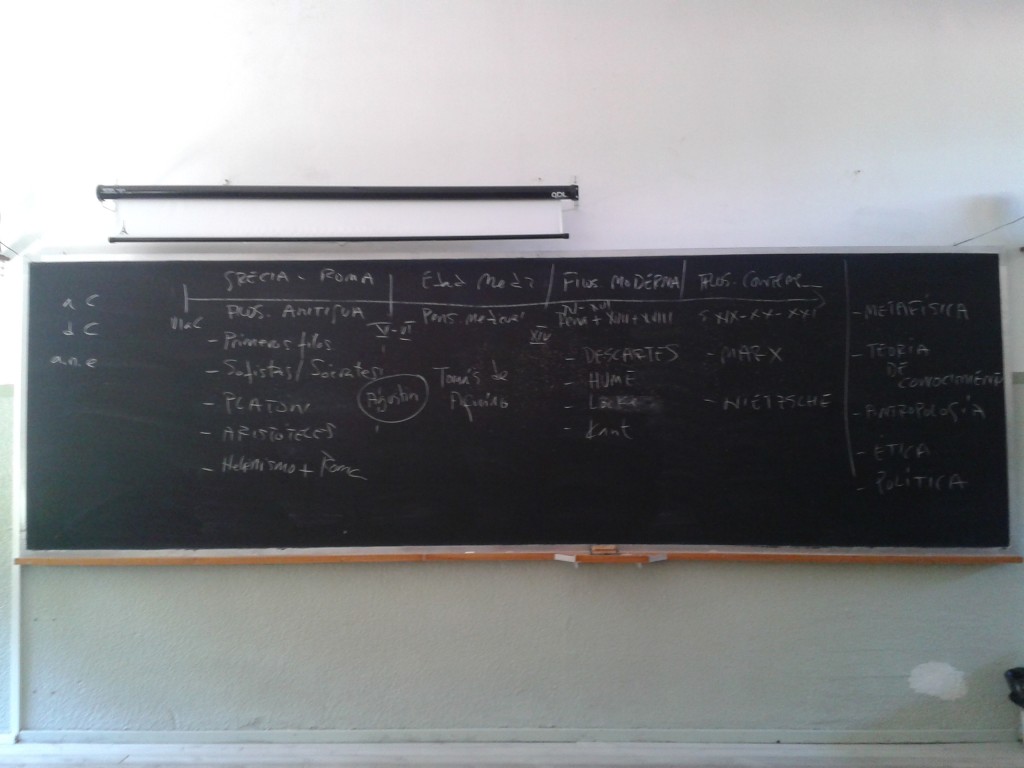 ODL
a C
d C
a.n.e
GRECIA - ROMA
VI a.C
FILOS. ANTIGUA
- Primeros filos
- Sofistas / Sócrates
- PLATON
- ARISTOTELES
- Helenismo + Roma
V - VI
Agustin
Edad Med
Pens. medieval
Tomás de
Aquino
XIV
FILOS. MODERNA
XV - XVI
Rena + XVII + XVIII
- DESCARTES
- HUME
- Locke
- Kant
FILOS. CONTEM
S XIX - XX - XXI
- MARX
- NIETZSCHE
- METAFÍSICA
- TEORÍA
DE
CONOCIMIENTO
- ANTROPOLOGÍA
- ÉTICA
- POLÍTICA